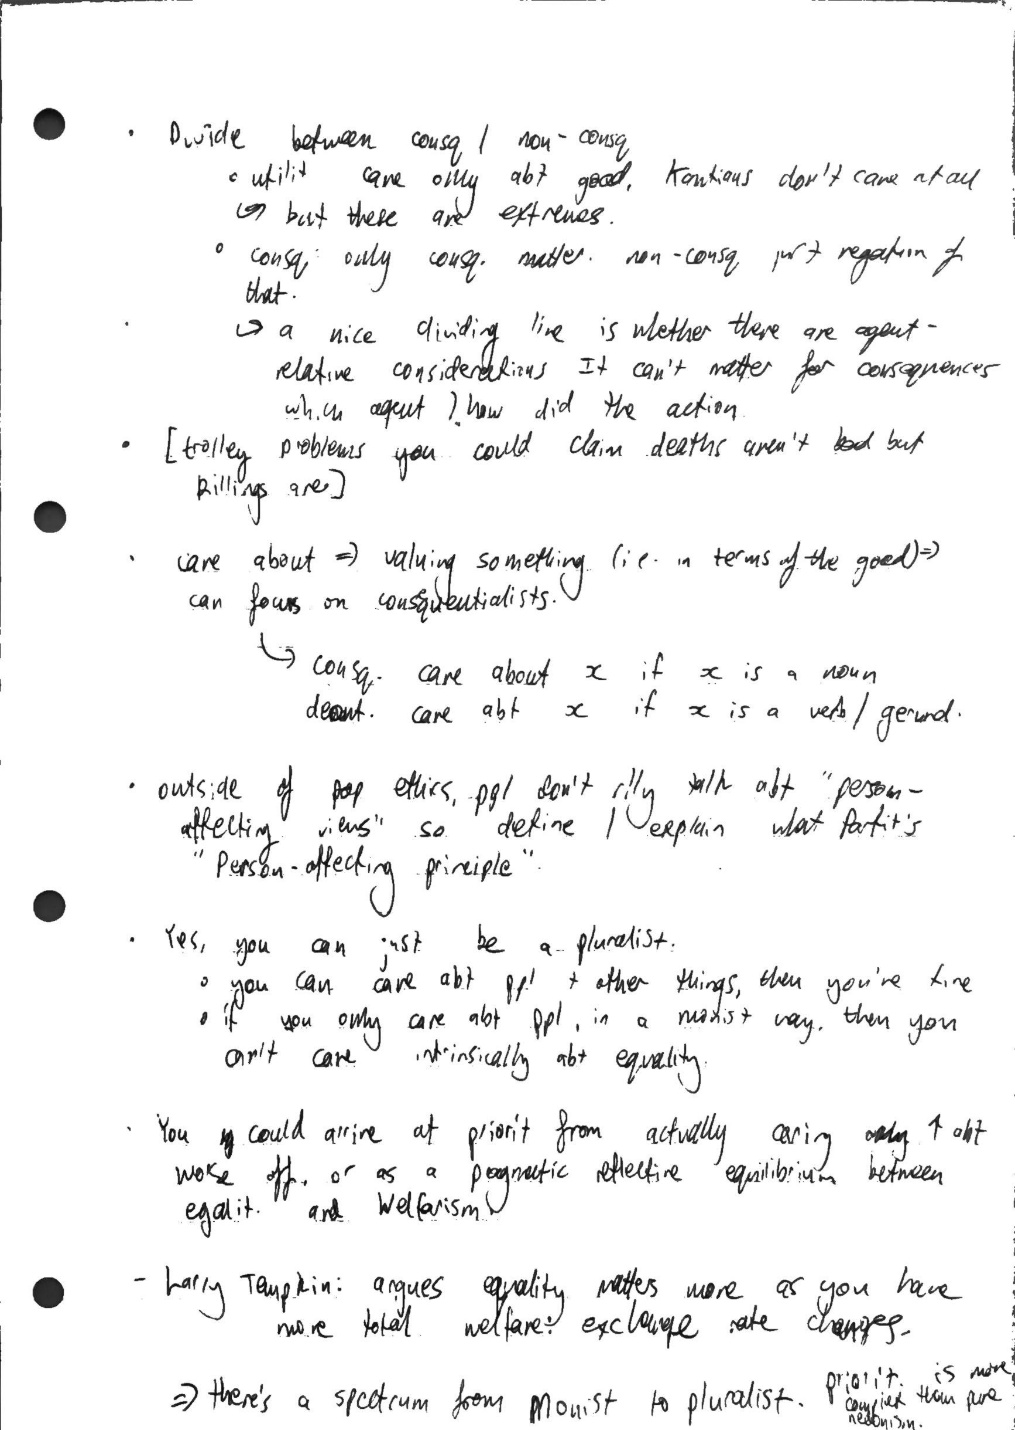 • Divide between consq / non-consq
◦ utilit care only abt good, Kantians don't care at all
↪ but these are extremes.
◦ consq: only consq. matter. non-consq just negation of
that.
↪ a nice dividing line is whether there are agent-
relative considerations It can't matter for consequences
which agent / how did the action
• [trolley problems you could claim deaths aren't bad but
killings are]
• care about ⇒ valuing something (i.e. in terms of the good) ⇒
can focus on consquentialists.
↪ consq. care about x if x is a noun
deont. care abt x if x is a verb / gerund.
• outside of pop ethics, ppl don't rlly talk abt "person-
affecting views" so define / explain what Parfit's
"Person-affecting principle".
• Yes, you can just be a pluralist.
◦ you can care abt ppl + other things, then you're fine
◦ if you only care abt ppl, in a monist way, then you
can't care intrinsically abt equality.
• You could arrive at priorit from actually caring ↑ abt
worse off, or as a pragmatic reflective equilibrium between
egalit. and Welfarism
- Larry Tempkin: argues equality matters more as you have
more total welfare: exchange rate changes.
⇒ there's a spectrum from Monist to pluralist. priorit. is more
complex than pure
hedonism.